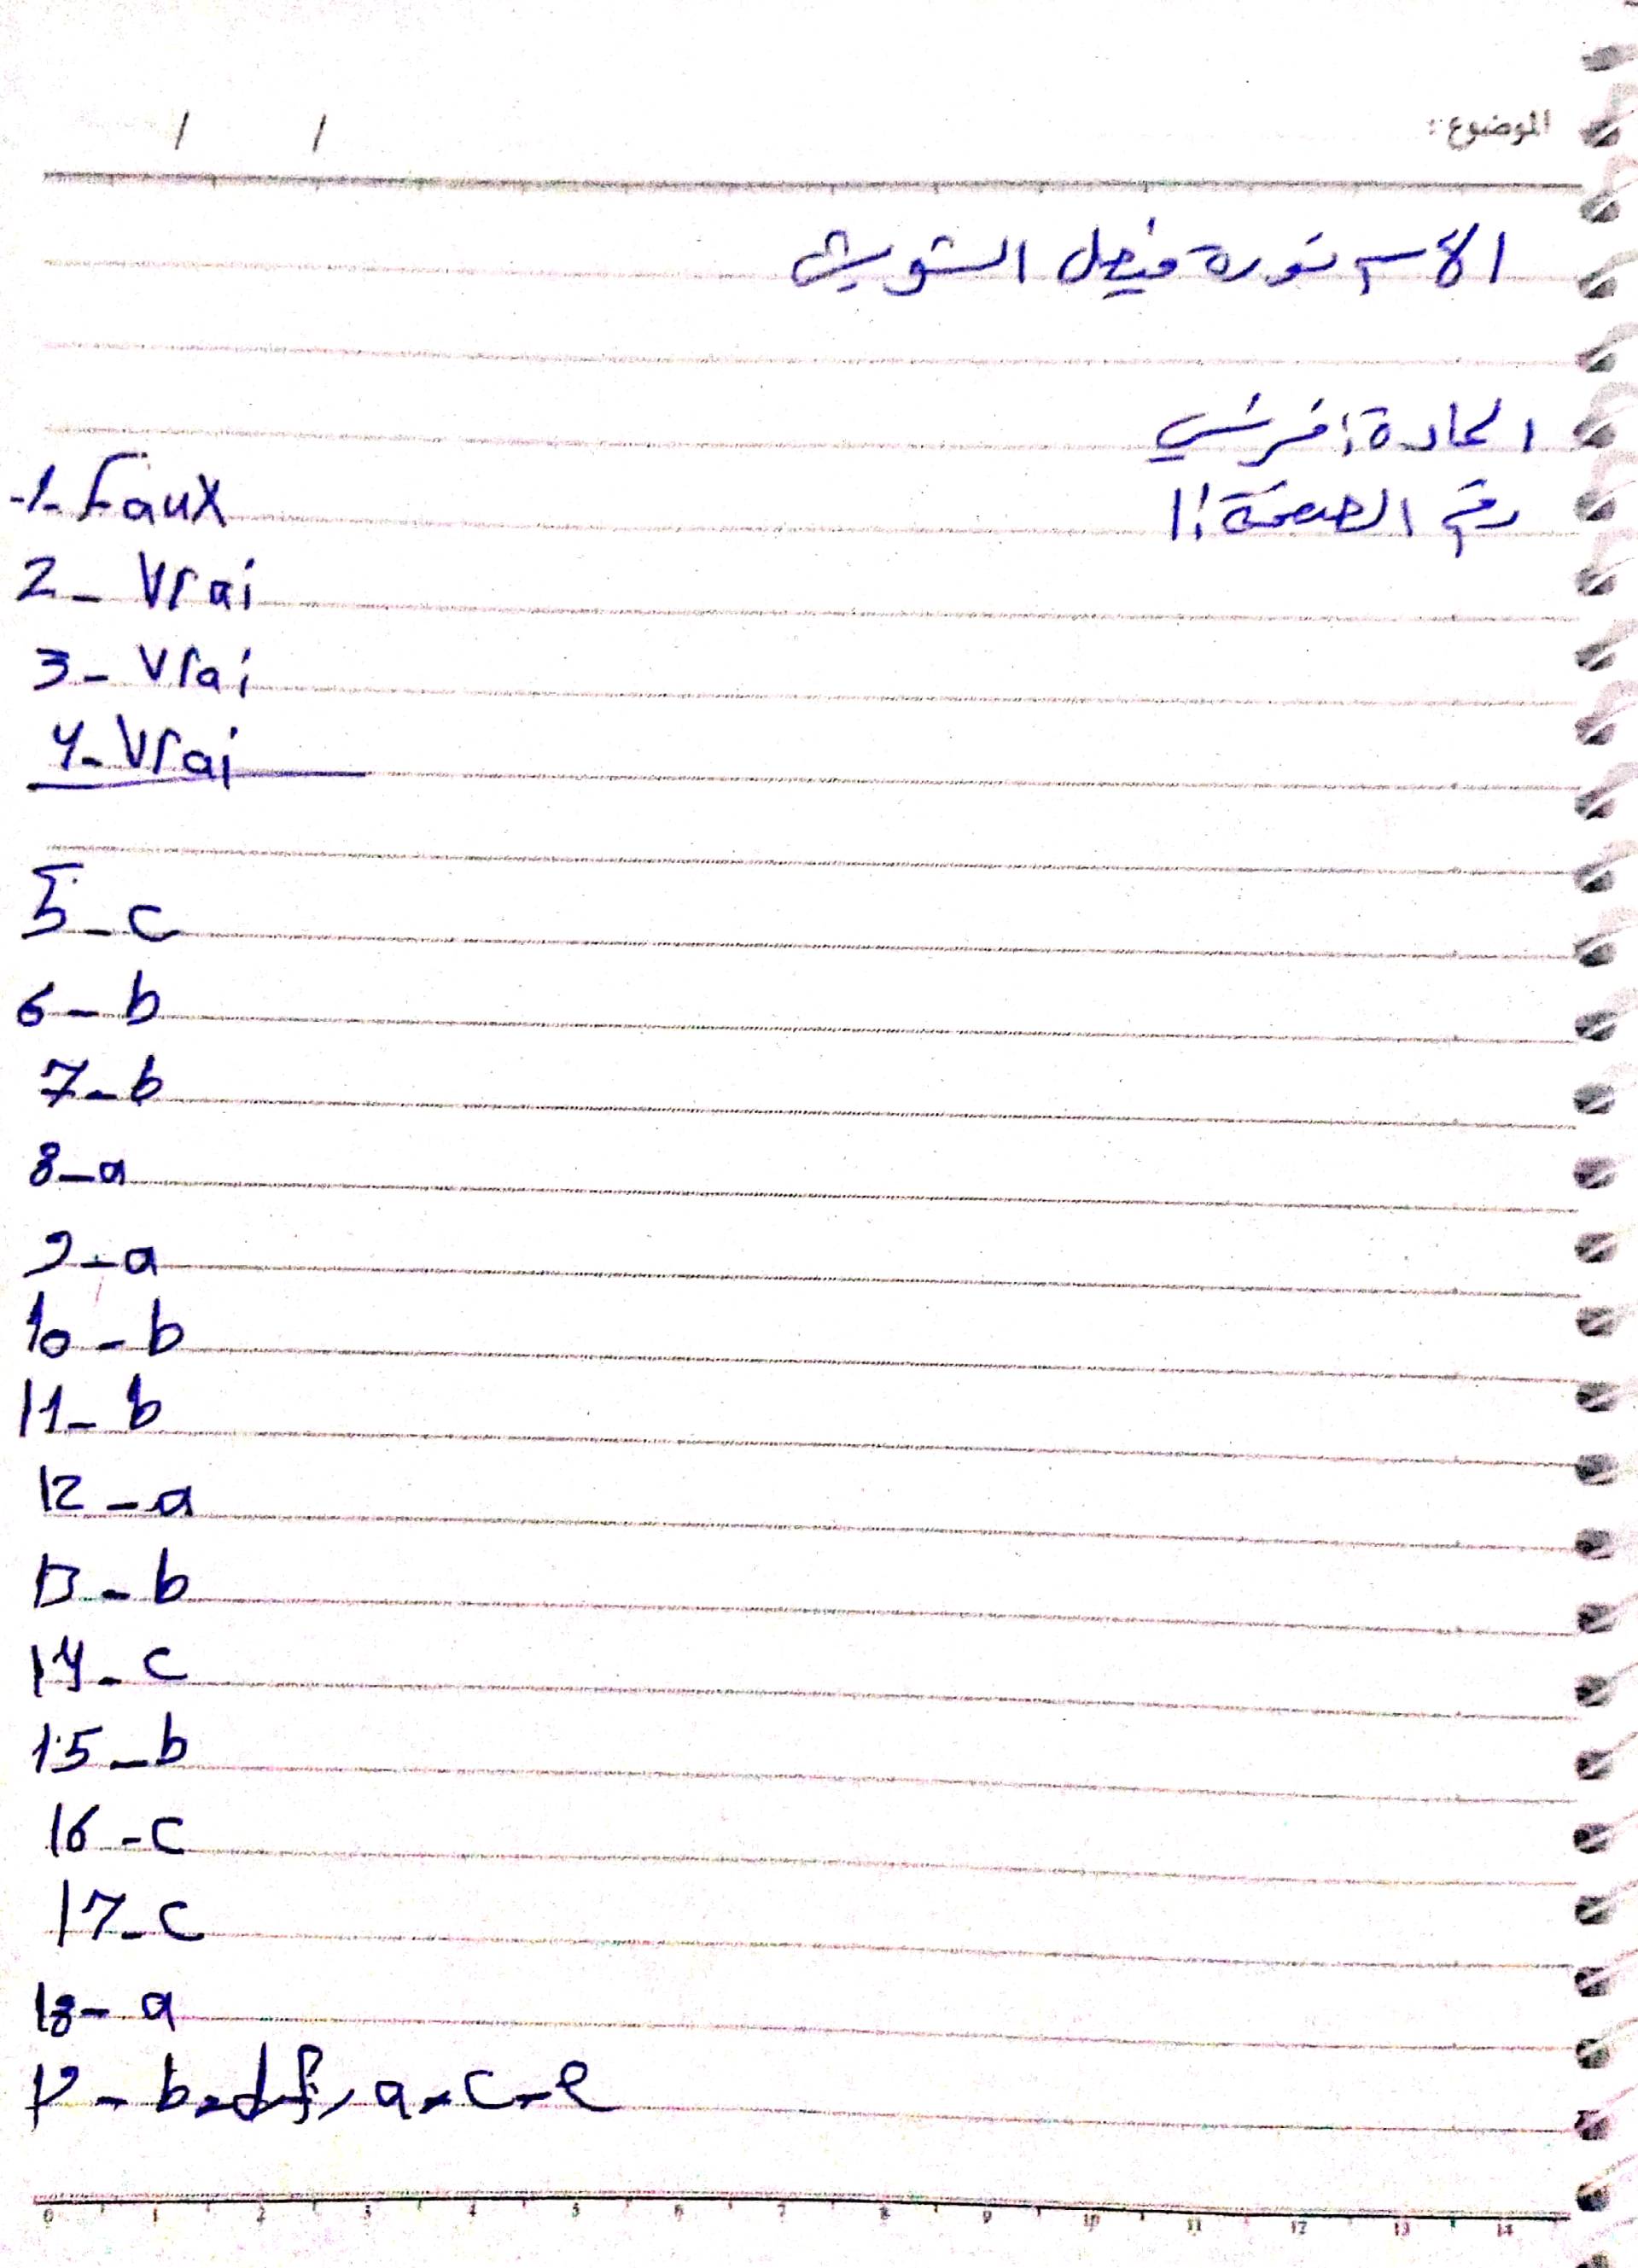 الموضوع:
/ /
الاسم نورة فيصل الشويش
المادة: فرنسي
رقم الصفحة: ١
-1- Faux
2- Vrai
3- Vrai
4- Vrai
5- c
6- b
7- b
8- a
9- a
10- b
11- b
12- a
13- b
14- c
15- b
16- c
17- c
18- a
19- b-d-f, a-c-e
0 1 2 3 4 5 6 7 8 9 10 11 12 13 14